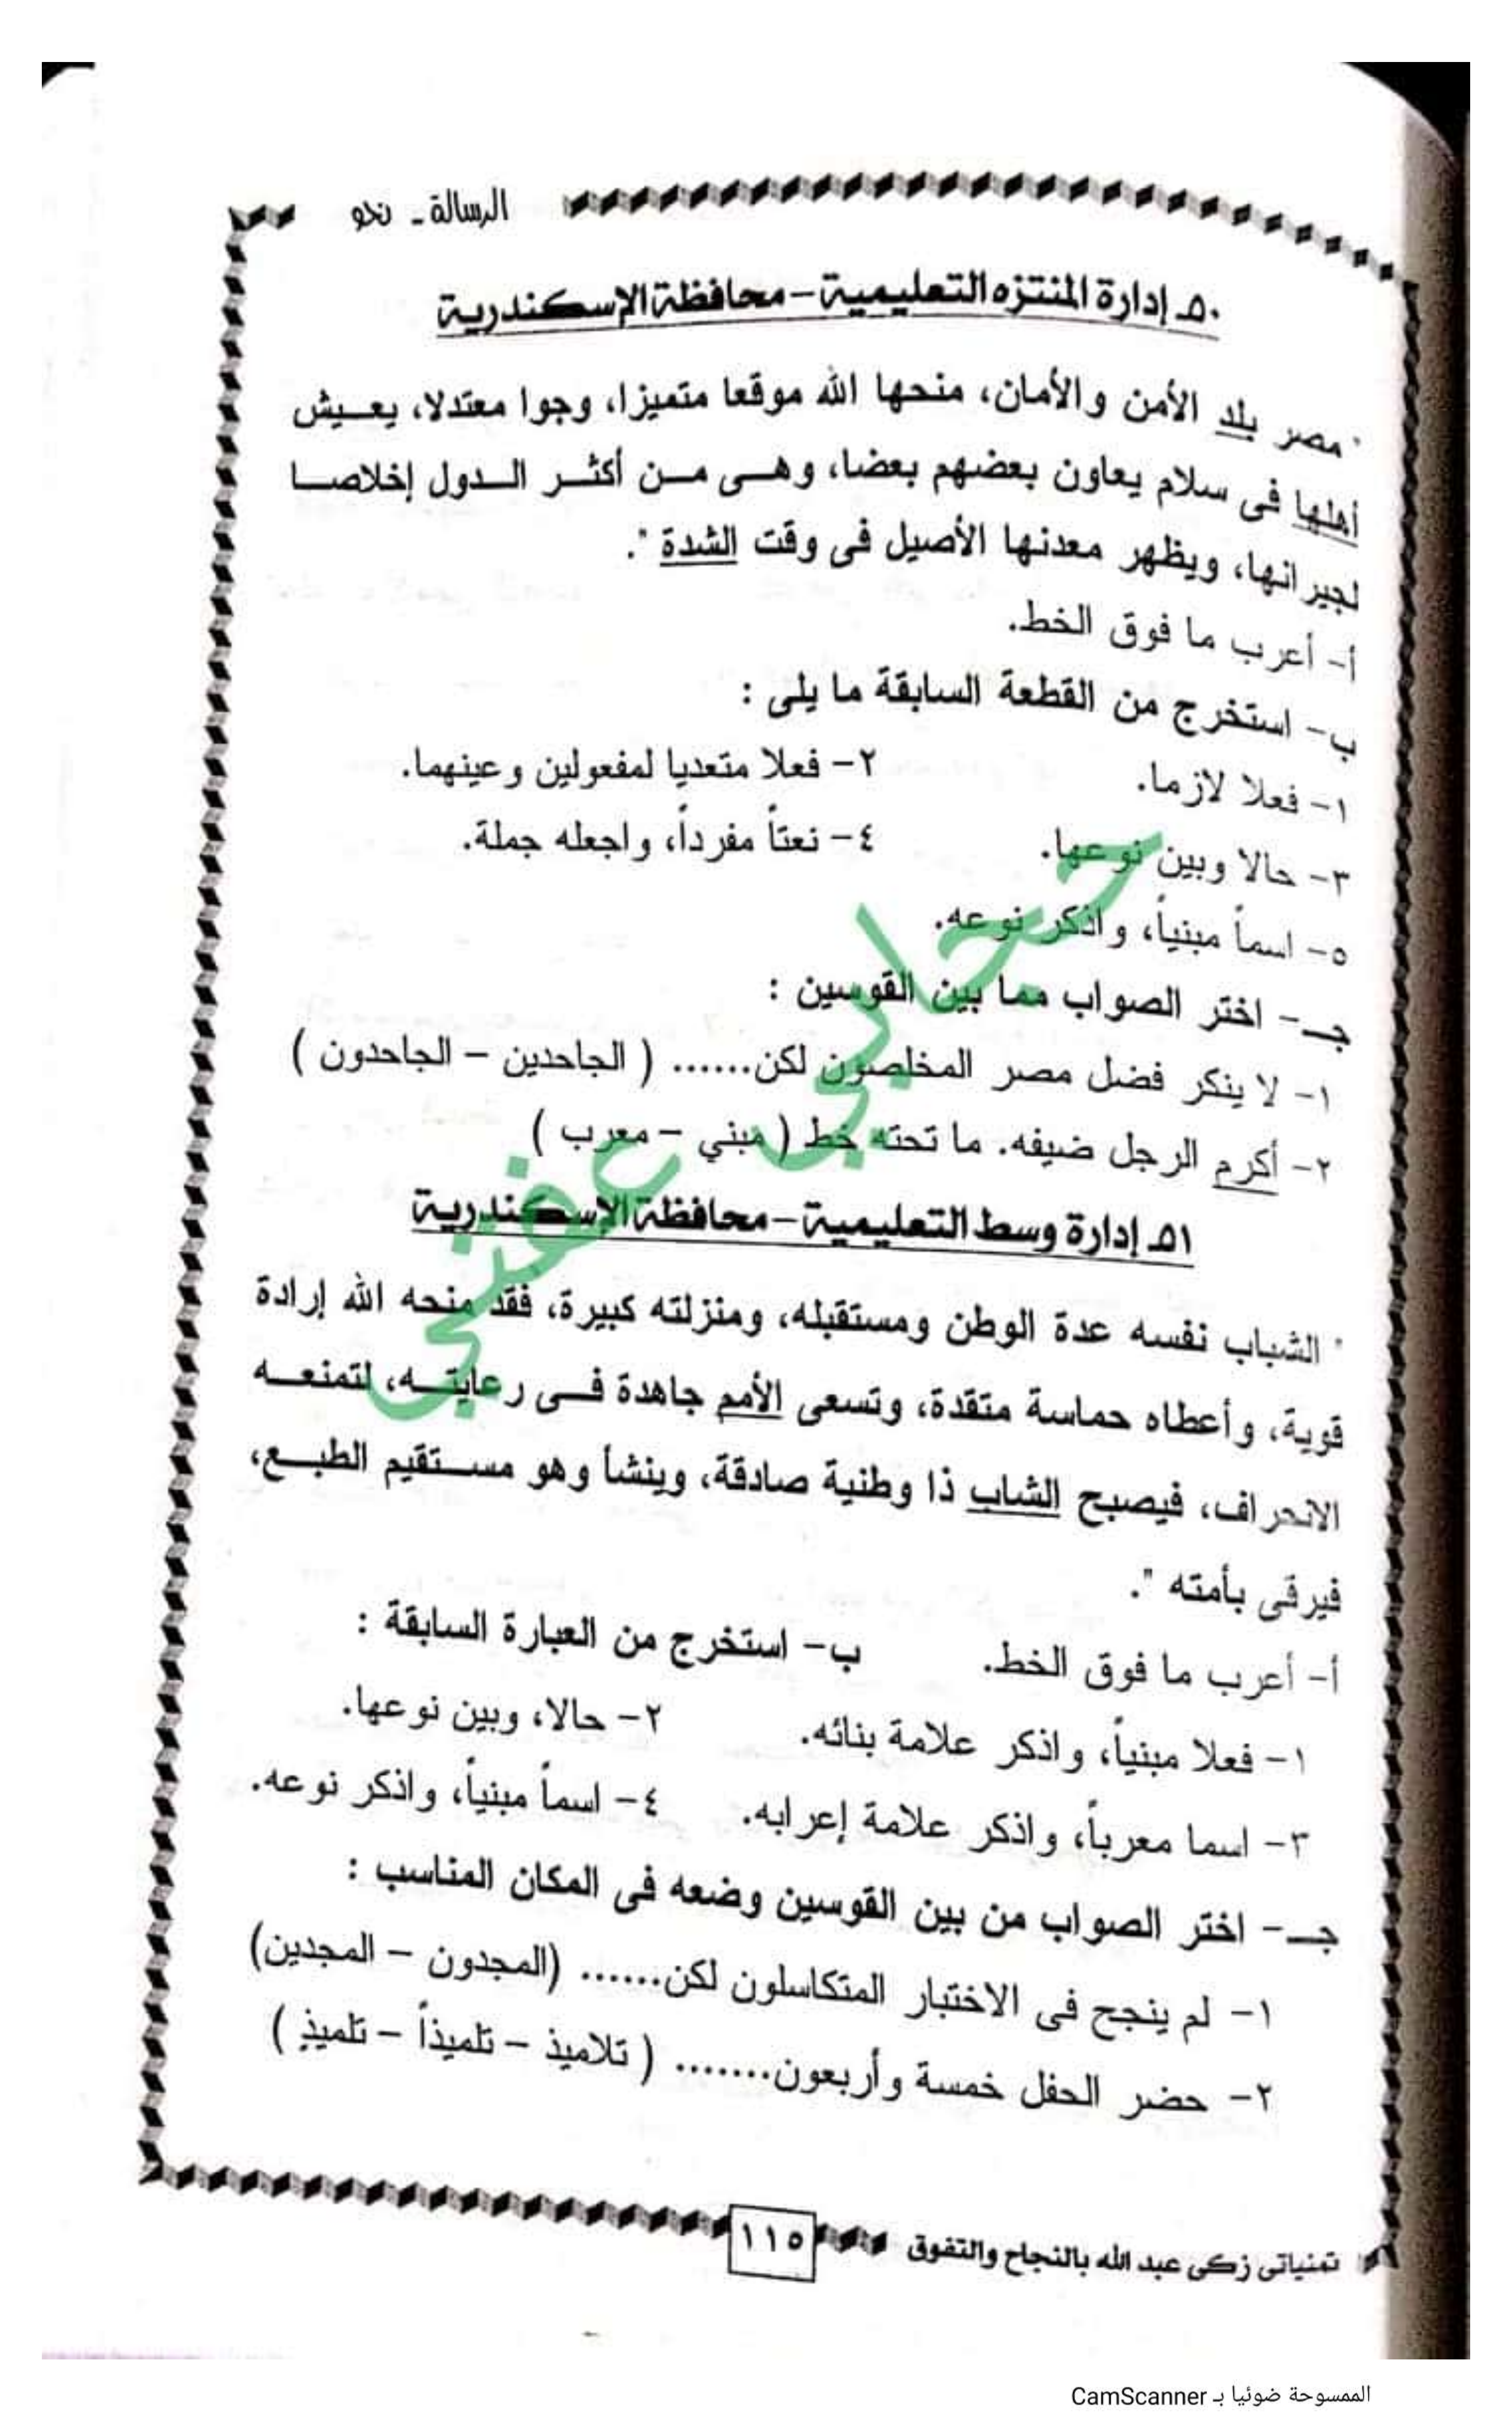 الرسالة - نحو
٥٠ـ إدارة المنتزه التعليمية - محافظة الإسكندرية
" مصر بلد الأمن والأمان، منحها الله موقعا متميزا، وجوا معتدلا، يعيش
أهلها فى سلام يعاون بعضهم بعضا، وهى من أكثر الدول إخلاصا
لجيرانها، ويظهر معدنها الأصيل فى وقت الشدة ".
أ- أعرب ما فوق الخط.
ب- استخرج من القطعة السابقة ما يلى :
١- فعلا لازما. ٢- فعلا متعديا لمفعولين وعينهما.
٣- حالا وبين نوعها. ٤- نعتاً مفرداً، واجعله جملة.
٥- اسماً مبنياً، واذكر نوعه.
جـ- اختر الصواب مما بين القوسين :
١- لا ينكر فضل مصر المخلصون لكن...... ( الجاحدين - الجاحدون )
٢- أكرم الرجل ضيفه. ما تحته خط ( مبني - معرب )
حجابي عفتي
٥١ـ إدارة وسط التعليمية - محافظة الإسكندرية
" الشباب نفسه عدة الوطن ومستقبله، ومنزلته كبيرة، فقد منحه الله إرادة
قوية، وأعطاه حماسة متقدة، وتسعى الأمم جاهدة فى رعايته، لتمنعه
الانحراف، فيصبح الشاب ذا وطنية صادقة، وينشأ وهو مستقيم الطبع،
فيرقى بأمته ".
أ- أعرب ما فوق الخط. ب- استخرج من العبارة السابقة :
١- فعلا مبنياً، واذكر علامة بنائه. ٢- حالا، وبين نوعها.
٣- اسما معرباً، واذكر علامة إعرابه. ٤- اسماً مبنياً، واذكر نوعه.
جـ- اختر الصواب من بين القوسين وضعه فى المكان المناسب :
١- لم ينجح فى الاختبار المتكاسلون لكن...... (المجدون - المجدين)
٢- حضر الحفل خمسة وأربعون....... ( تلاميذ - تلميذاً - تلميذٍ )
تمنياتى زكى عبد الله بالنجاح والتفوق
١١٥
الممسوحة ضوئيا بـ CamScanner